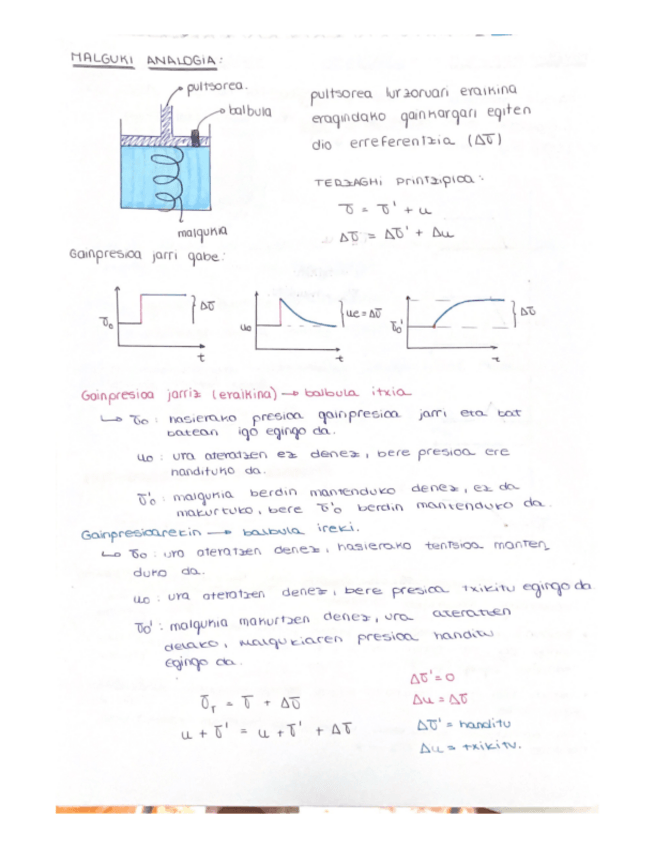 MALGUKI ANALOGIA:
pultsorea.
balbula
malgukia
pultsorea lurzoruari eraikina
eragindako gainkargari egiten
dio erreferentzia (Δσ)
TERZAGHI printzipioa:
σ = σ' + u
Δσ = Δσ' + Δu
Gainpresioa jarri gabe:
σo
Δσ
t
uo
ue = Δσ
t
σo'
Δσ
t
Gainpresioa jarriz (eraikina) → balbula itxia
↳ σo : hasierako presioa gainpresioa jarri eta bat
batean igo egingo da.
uo : ura ateratzen ez denez, bere presioa ere
handituko da.
σ'o : malgukia berdin mantenduko denez, ez da
makurtuko, bere σ'o berdin mantenduko da.
Gainpresioarekin → balbula ireki.
↳ σo : ura ateratzen denez, hasierako tentsioa manten
duko da.
uo : ura ateratzen denez, bere presioa txikitu egingo da
σo' : malgukia makurtzen denez, ura ateratzen
delako, malgukiaren presioa handitu
egingo da.
σr = σ + Δσ
u + σ' = u + σ' + Δσ
Δσ' = 0
Δu = Δσ
Δσ' = handitu
Δu = txikitu.